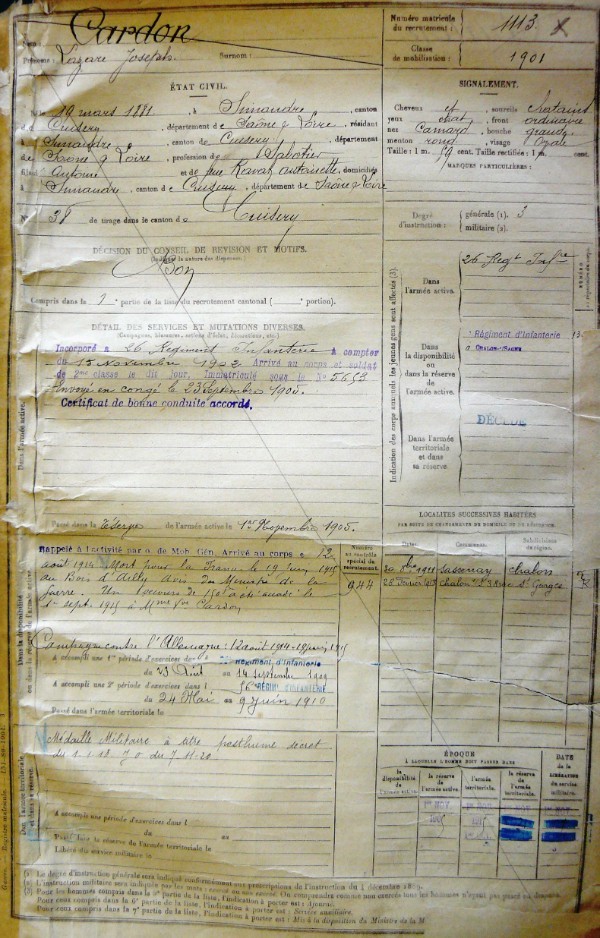 Nom : Cardon
Prénoms : Lazare Joseph. Surnom :
Numéro matricule du recrutement : 1113
Classe de mobilisation : 1901
ÉTAT CIVIL.
Né le 19 mars 1881, à Simandre, canton
de Cuisery, département de Saône & Loire, résidant
à Simandre, canton de Cuisery, département
de Saône & Loire, profession de Sabotier
fils d' Antoine et de feue Ravat Antoinette, domiciliés
à Simandre, canton de Cuisery, département de Saône & Loire
N° 38 de tirage dans le canton de Cuisery
SIGNALEMENT.
Cheveux et sourcils chatains
yeux chat, front ordinaire
nez camard, bouche grande
menton rond, visage ovale
Taille : 1 m. 59 cent. Taille rectifiée : 1 m. cent.
MARQUES PARTICULIÈRES :
Degré d'instruction : générale (1). 3
militaire (2).
DÉCISION DU CONSEIL DE REVISION ET MOTIFS.
Bon
Compris dans la 1 partie de la liste du recrutement cantonal ( portion).
DÉTAIL DES SERVICES ET MUTATIONS DIVERSES.
(Campagnes, blessures, actions d'éclat, décorations, etc.)
Incorporé à 26 Régiment d'Infanterie à compter
du 15 Novembre 1902 Arrivé au corps et soldat
de 2me classe le dit jour. Immatriculé sous le N° 5653
Envoyé en congé le 23 septembre 1905.
Certificat de bonne conduite accordé.
Dans l'armée active.
Passé dans la réserve de l'armée active le 1er Novembre 1905.
Rappelé à l'activité par o. de Mob. Gén. Arrivé au corps le 12
août 1914 Mort pour la France le 19 juin 1915
au Bois d'Ailly Avis du Ministre de la
Guerre. Un secours de 150f a été accordé le
1er sept. 1915 à Mme Vve Cardon
Campagne contre l'Allemagne : 12 août 1914 - 19 juin 1915
A accompli une 1re période d'exercices dans le Régiment d'Infanterie
du 23 Août au 14 septembre 1909
A accompli une 2e période d'exercices dans l 56 RÉGIM. D'INFANTERIE
du 24 Mai au 9 Juin 1910
Passé dans l'armée territoriale le
Médaille Militaire à titre posthume
J.O. du 7.11.20
A accompli une période d'exercices dans l
du au
Passé dans la réserve de l'armée territoriale le
Libéré du service militaire le
Indication des corps auxquels les jeunes gens sont affectés (3).
Dans l'armée active.
26 Régt Infie
Dans la disponibilité ou dans la réserve de l'armée active.
Régiment d'Infanterie
à CHALON-S-SAÔNE
DÉCÉDÉ
Dans l'armée territoriale et dans sa réserve
Numéro au contrôle spécial du recrutement.
944
LOCALITÉS SUCCESSIVES HABITÉES
PAR SUITE DE CHANGEMENTS DE DOMICILE OU DE RÉSIDENCE.
Dates. Communes. Subdivisions de région.
Sassenay Chalon
Chalon Rue St Georges
ÉPOQUE
À LAQUELLE L'HOMME DOIT PASSER DANS
la disponibilité de l'armée active.
la réserve de l'armée active.
l'armée territoriale.
la réserve de l'armée territoriale.
DATE de la LIBÉRATION du service militaire.
(1) Le degré d'instruction générale sera indiqué conformément aux prescriptions de l'instruction du 4 décembre 1889.
Pour ceux compris dans la 6e partie de la liste, l'indication à porter est : Service auxiliaire.
Pour ceux compris dans la 7e partie de la liste, l'indication à porter est : Mis à la disposition du Ministre de la M.